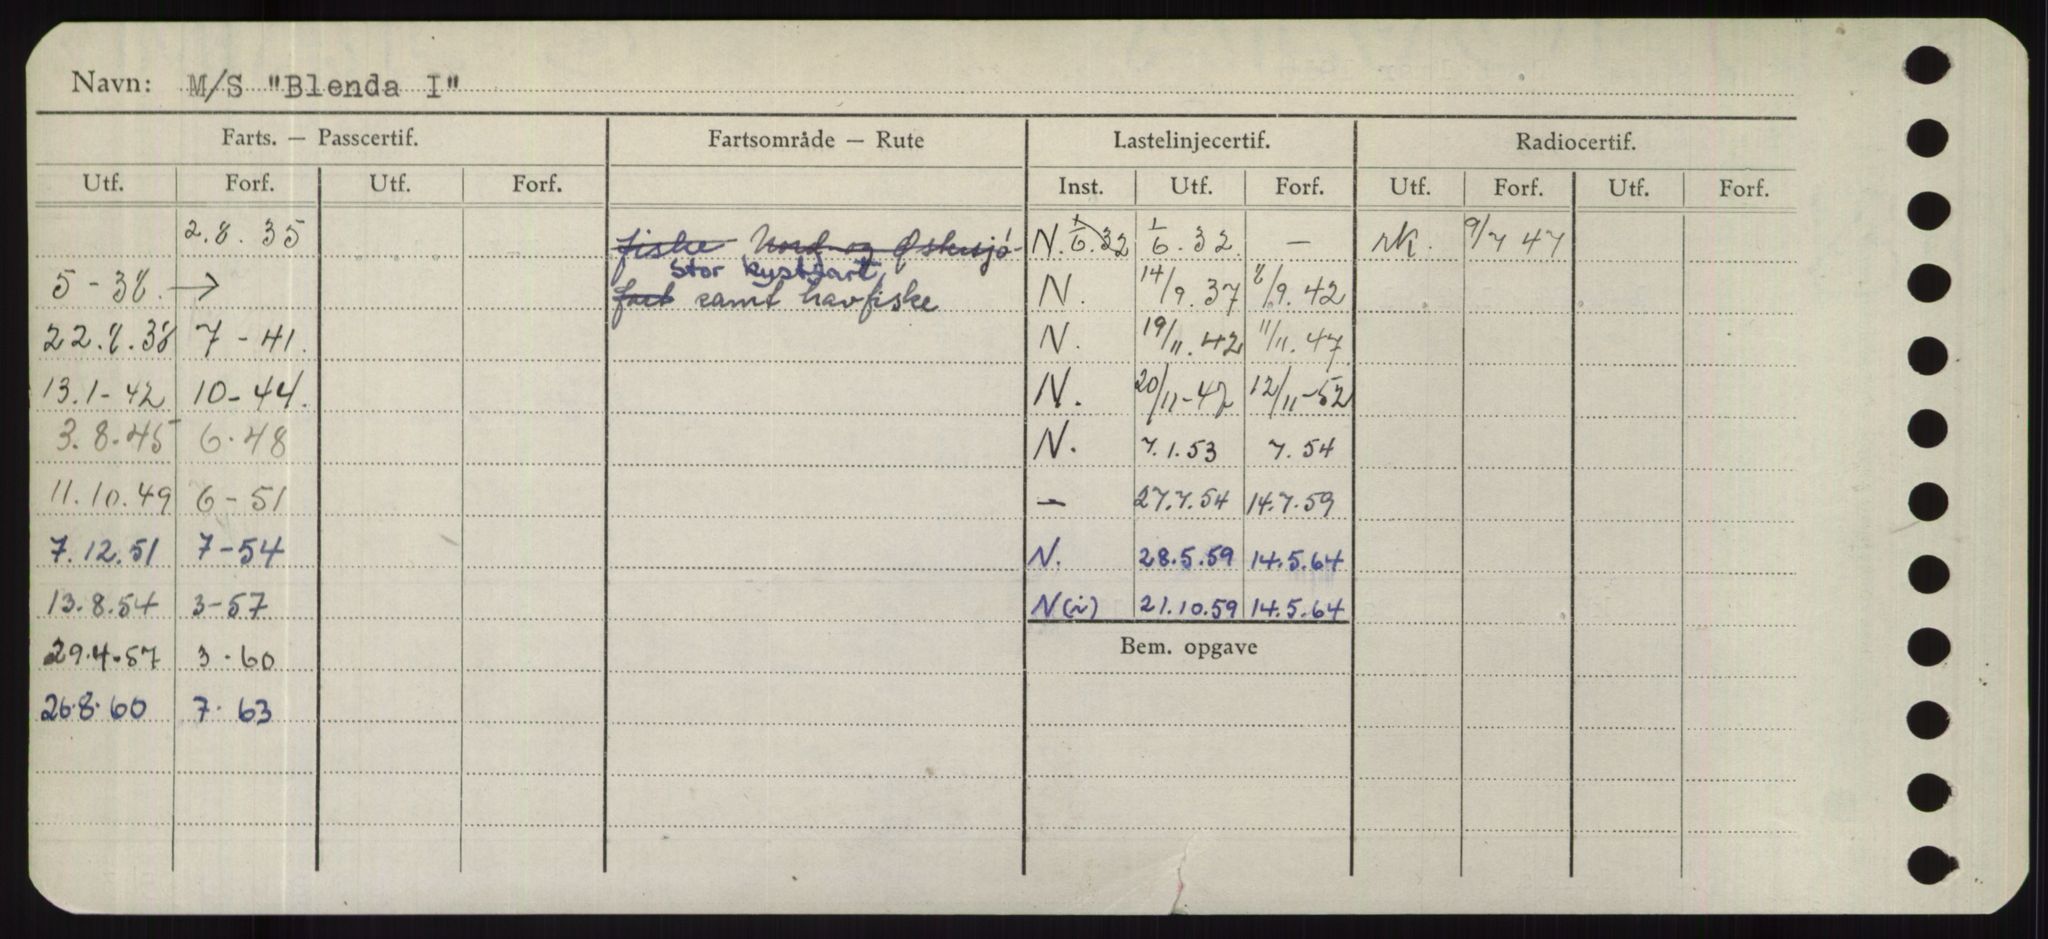 Navn: M/S "Blenda I"
Farts. — Passcertif. Fartsområde — Rute Lastelinjecertif. Radiocertif.
Utf. Forf. Utf. Forf. Inst. Utf. Forf. Utf. Forf. Utf. Forf.
2.8.35 fiske Nord og Østersjø- N. 1/6.32 1/6.32 — rk. 9/7 47
stor kystfart
5-38. → fart samt havfiske N. 14/9.37 8/9.42
22.8.38 7-41. N. 19/11.42 11/11.47
13.1-42 10-44. N. 20/11-47 12/11-52
3.8.45 6.48 N. 7.1.53 7.54
11.10.49 6-51 — 27.7.54 14.7.59
7.12.51 7-54 N. 28.5.59 14.5.64
13.8.54 3-57 N(i) 21.10.59 14.5.64
29.4.57 3.60 Bem. opgave
26.8.60 7.63